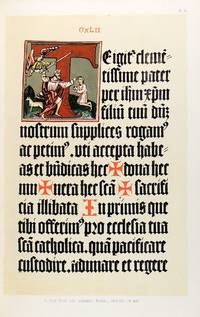 CXLII
Te igit' clemē
tissime pater
per ihm̄ xp̄m
filiū tuū dn̄z
nostrum supplices rogam'
ac petim'. uti accepta habe
as et bn̄dicas hec ✠ dona hec
mu ✠ nera hec sc̄a ✠ sacrifi
cia illibata In primis que
tibi offerim' pro ecclesia tua
sc̄a catholica. quā pacificare
custodire. adunare et regere